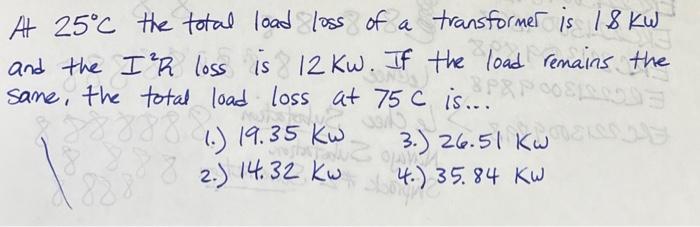 At 25°C the total load loss of a transformer is 18 Kw
and the I²R loss is 12 Kw. If the load remains the
same, the total load loss at 75 C is...
1.) 19.35 Kw 3.) 26.51 Kw
2.) 14.32 Kw 4.) 35.84 Kw